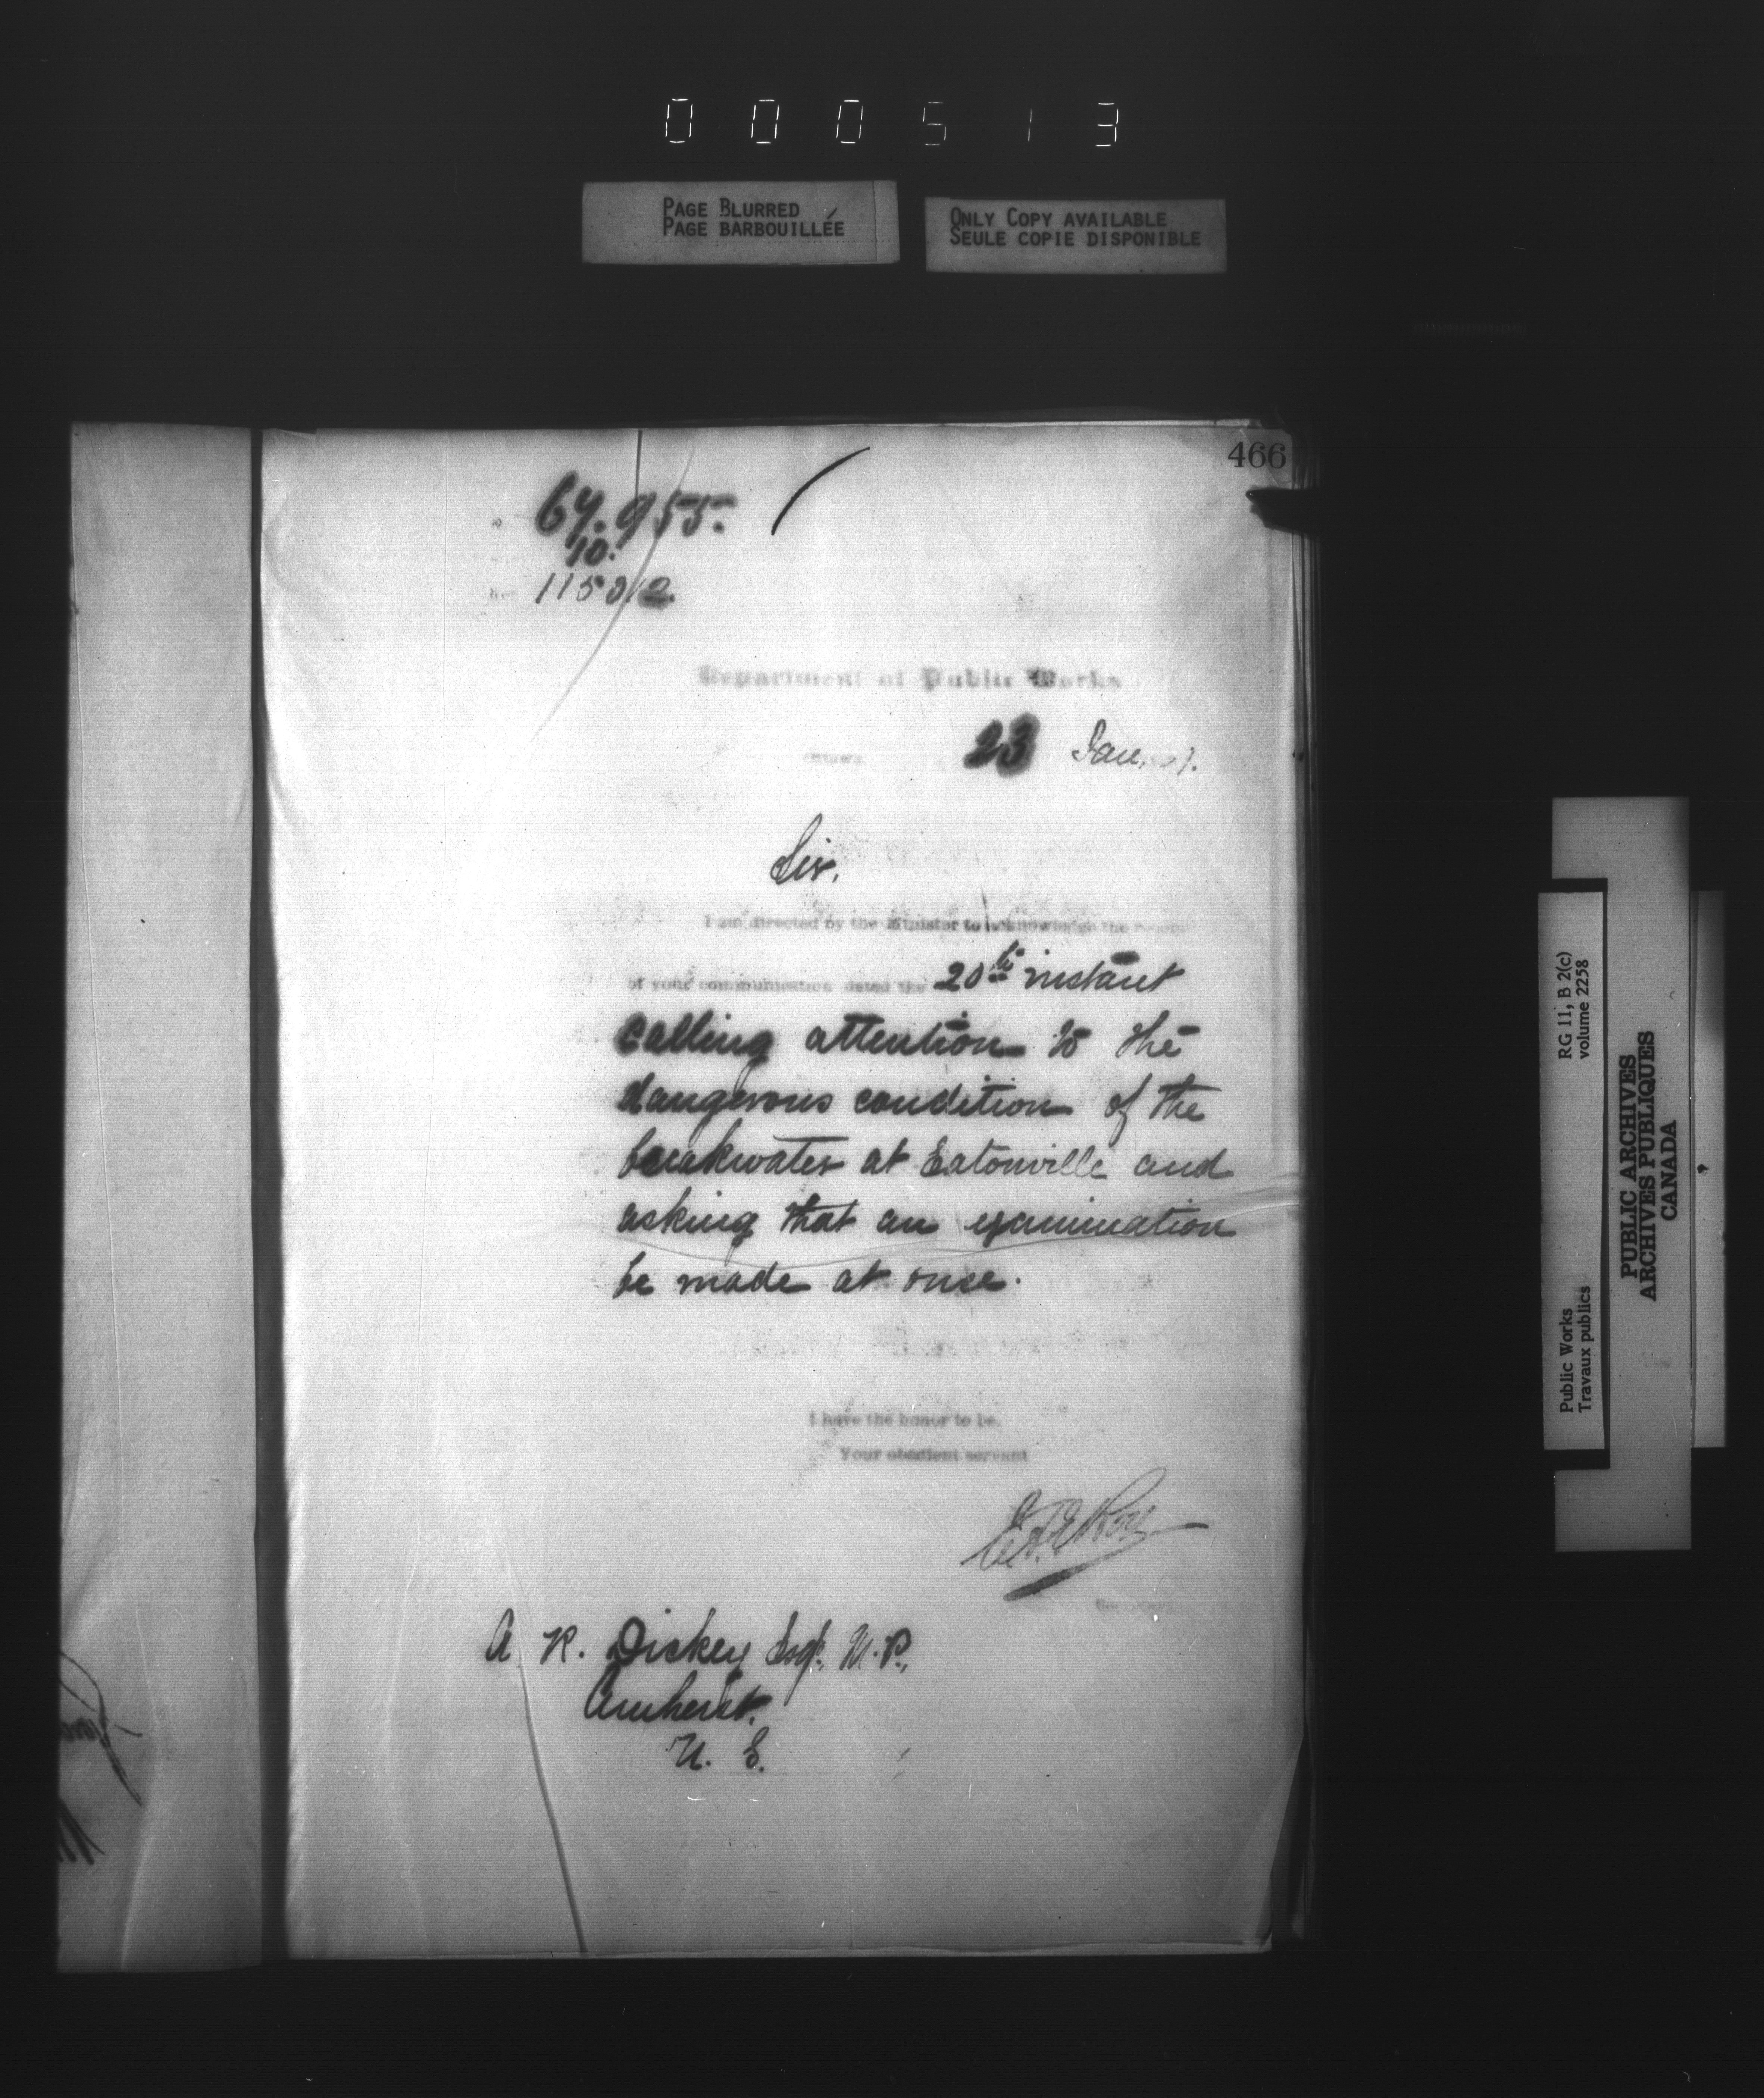 000513
PAGE BLURRED
PAGE BARBOUILLÉE
ONLY COPY AVAILABLE
SEULE COPIE DISPONIBLE
466
64.955.
10.
115312.
Department of Public Works
Ottawa 23 Jan.
Sir,
I am directed by the Minister to acknowledge the receipt
of your communication dated the 20th instant
calling attention to the
dangerous condition of the
breakwater at Eatonville and
asking that an examination
be made at once.
I have the honor to be,
Your obedient servant
E.F.E. Roy
Secretary
A. R. Dickey Esqr., M.P.,
Amherst.
N. S.
Public Works
Travaux publics
RG 11, B 2(c)
volume 2258
PUBLIC ARCHIVES
ARCHIVES PUBLIQUES
CANADA